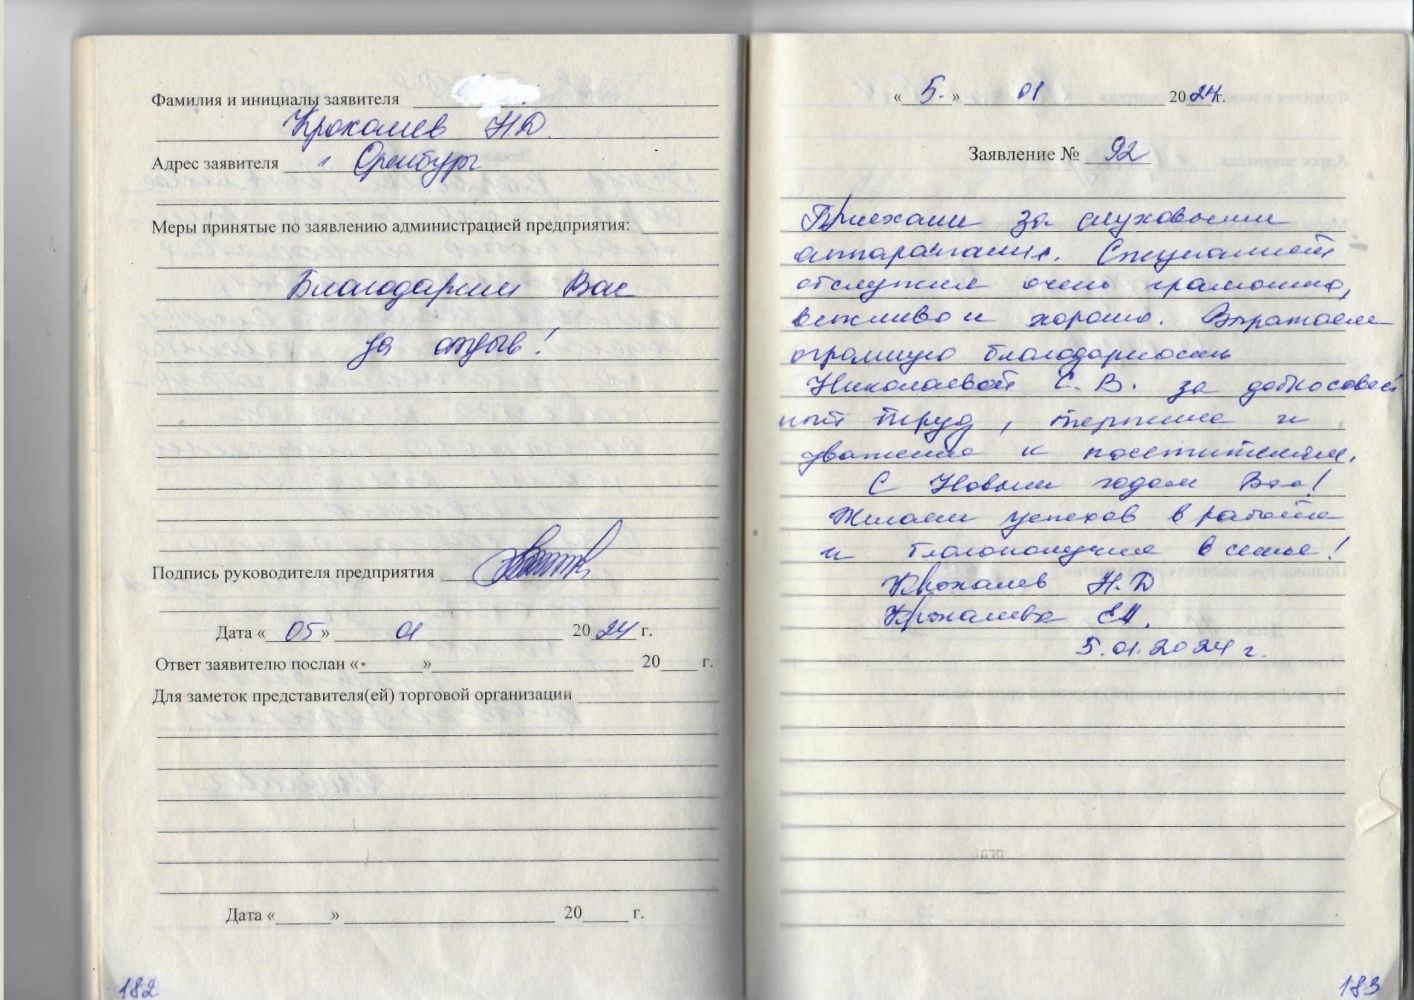 Фамилия и инициалы заявителя
Крохалев Н.Д.
Адрес заявителя г Оренбург
Меры принятые по заявлению администрацией предприятия:
Благодарим Вас
за отзыв!
Подпись руководителя предприятия
Дата «05» 01 2024 г.
Ответ заявителю послан «     » 20     г.
Для заметок представителя(ей) торговой организации
Дата «     » 20     г.
182
«5.» 01 2024г.
Заявление № 92
Приехали за слуховыми
аппаратами. Специалист
отслужил очень грамотно,
вежливо и хорошо. Выражаем
огромную благодарность
Николаевой С.В. за добросовест
ный труд, терпение и
уважение к посетителям.
С Новым годом Вас!
Желаем успехов в работе
и благополучия в семье!
Крохалев Н.Д
Крохалева Е.И.
5.01.2024 г.
183